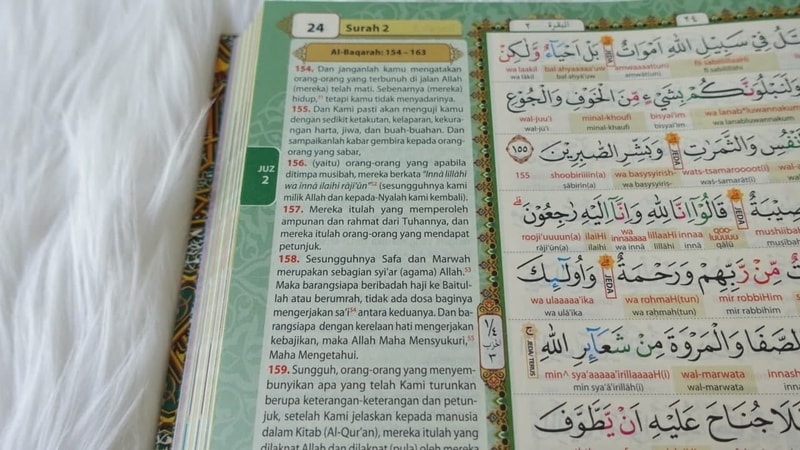 24 Surah 2
Al-Baqarah: 154 – 163
154. Dan janganlah kamu mengatakan
orang-orang yang terbunuh di jalan Allah
(mereka) telah mati. Sebenarnya (mereka)
hidup,⁵¹ tetapi kamu tidak menyadarinya.
155. Dan Kami pasti akan menguji kamu
dengan sedikit ketakutan, kelaparan, kekura-
ngan harta, jiwa, dan buah-buahan. Dan
sampaikanlah kabar gembira kepada orang-
orang yang sabar,
156. (yaitu) orang-orang yang apabila
ditimpa musibah, mereka berkata "Innā lillāhi
wa innā ilaihi rāji'ūn"⁵² (sesungguhnya kami
milik Allah dan kepada-Nyalah kami kembali).
157. Mereka itulah yang memperoleh
ampunan dan rahmat dari Tuhannya, dan
mereka itulah orang-orang yang mendapat
petunjuk.
158. Sesungguhnya Safa dan Marwah
merupakan sebagian syi'ar (agama) Allah.⁵³
Maka barangsiapa beribadah haji ke Baitul-
lah atau berumrah, tidak ada dosa baginya
mengerjakan sa'i⁵⁴ antara keduanya. Dan ba-
rangsiapa dengan kerelaan hati mengerjakan
kebajikan, maka Allah Maha Mensyukuri,⁵⁵
Maha Mengetahui.
159. Sungguh, orang-orang yang menyem-
bunyikan apa yang telah Kami turunkan
berupa keterangan-keterangan dan petun-
juk, setelah Kami jelaskan kepada manusia
dalam Kitab (Al-Qur'an), mereka itulah yang
dilaknat Allah dan dilaknat (pula) oleh mereka
JUZ
2
البقرة ٢
٢٤
فِي سَبِيْلِ اللّٰهِ اَمْوَاتٌ ۗ بَلْ اَحْيَاۤءٌ وَّلٰكِنْ
wa laakil bal ahyaaaaa'uw amwaaat(tun) fii sabiilillaaHi
wa lākil bal ahyā'uw amwāt(un) fī sabīlillāhi
وَلَنَبْلُوَنَّكُمْ بِشَيْءٍ مِّنَ الْخَوْفِ وَالْجُوْعِ
wal-juu'i minal-khoufi bisyai'im wa lanabluwannakum
wal-jū'i minal-khaufi bisyai'im wa lanabluwannakum
وَالثَّمَرٰتِ ۗ وَبَشِّرِ الصّٰبِرِيْنَ ١٥٥
155 shoobiriiin(a) wa basysyirish- wats-tsamarooot(i)
sābirīn(a) wa basysyiris- was-samarāt(i)
قَالُوْٓا اِنَّا لِلّٰهِ وَاِنَّآ اِلَيْهِ رٰجِعُوْنَ
rooji'uuuun(a) ilaiHi wa innaaaaa lillaaHi innaa qoo-luuuuu
rāji'ūn(a) ilaihi wa innā lillāhi innā qālū
مِّنْ رَّبِّهِمْ وَرَحْمَةٌ ۗ وَاُولٰۤىِٕكَ
wa ulaaaaa'ika wa rohmaH(tun) mir robbiHim
wa ulā'ika wa rahmah(tun) mir rabbihim
الصَّفَا وَالْمَرْوَةَ مِنْ شَعَاۤىِٕرِ اللّٰهِ
min^ sya'aaaaa'irillaaaaH(i) wal-marwata
min sya'ā'irillāh(i) wal-marwata
فَلَا جُنَاحَ عَلَيْهِ اَنْ يَّطَّوَّفَ